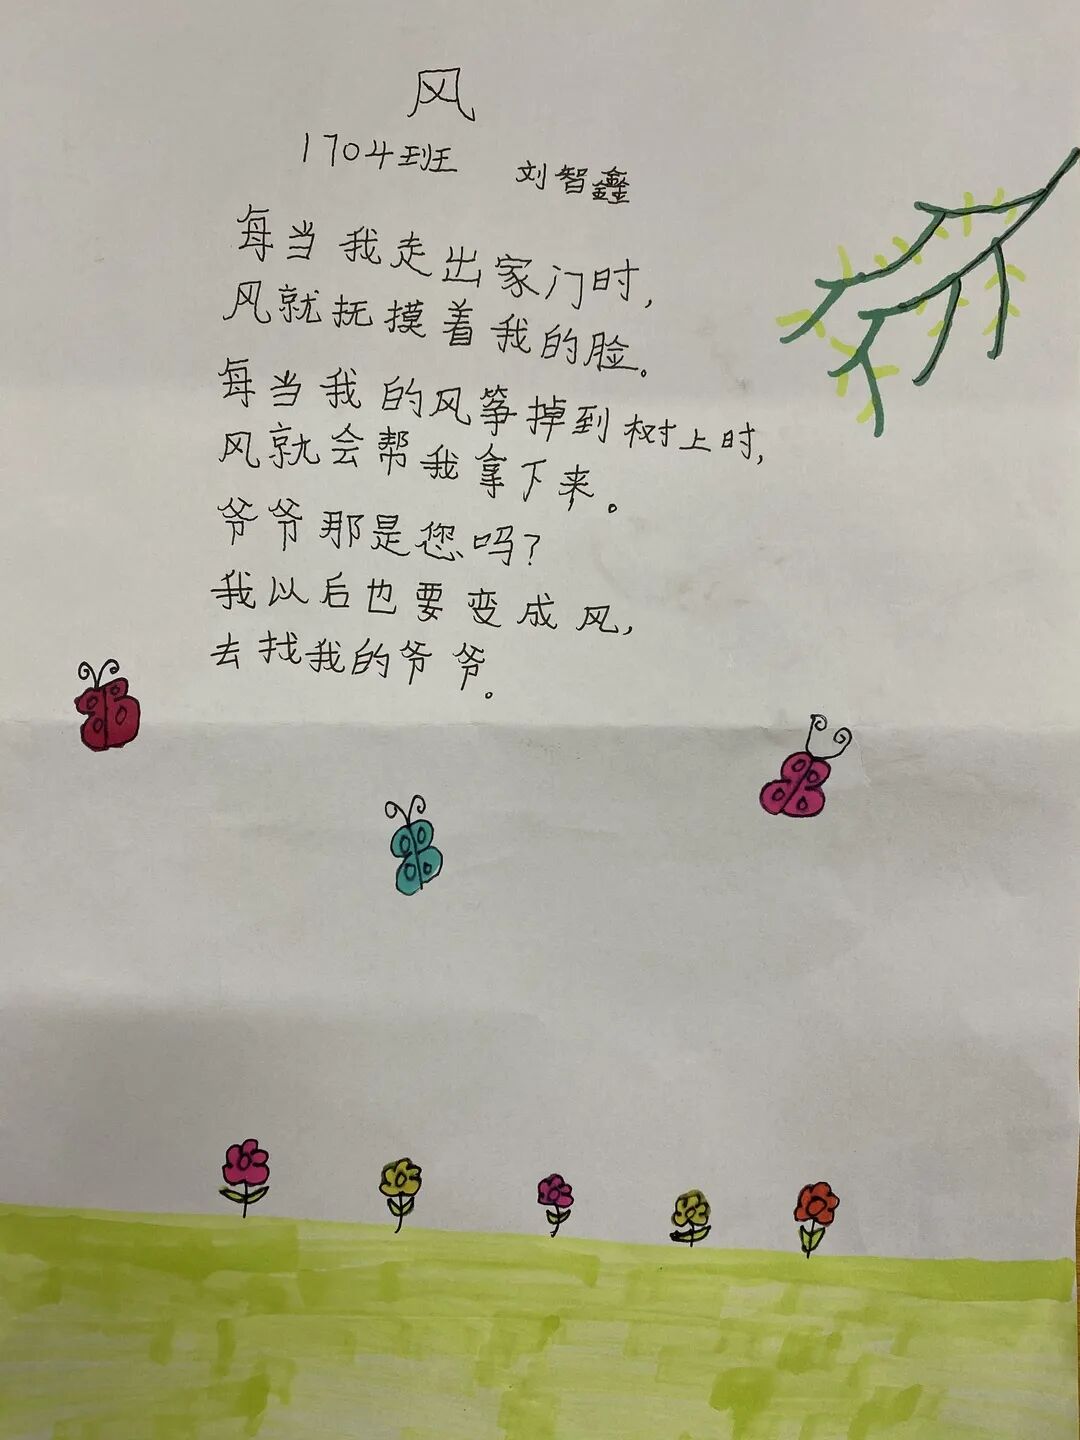 风
1704班 刘智鑫
每当我走出家门时,
风就抚摸着我的脸。
每当我的风筝掉到树上时,
风就会帮我拿下来。
爷爷那是您吗?
我以后也要变成风,
去找我的爷爷。